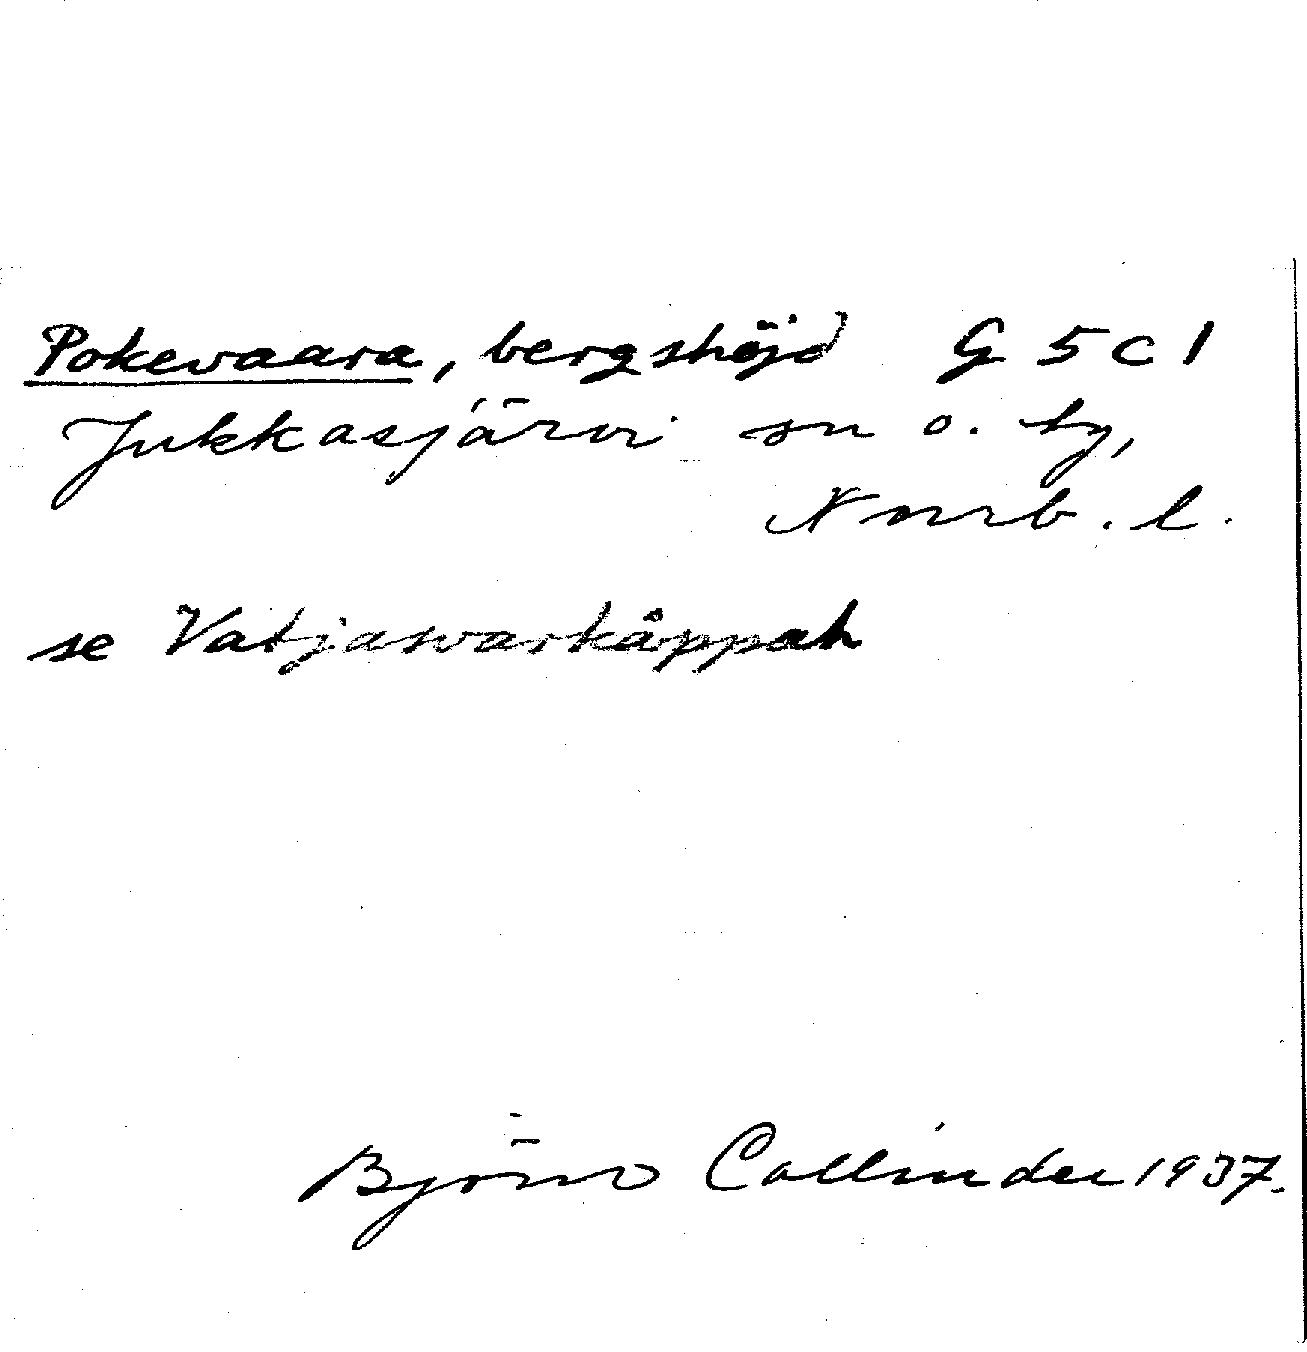 Pokevaara, bergshöjd G 5 c 1
Jukkasjärvi sn o. by,
Norrb. l.
se Vatjasvarkåppah
Björn Collinder 1937.